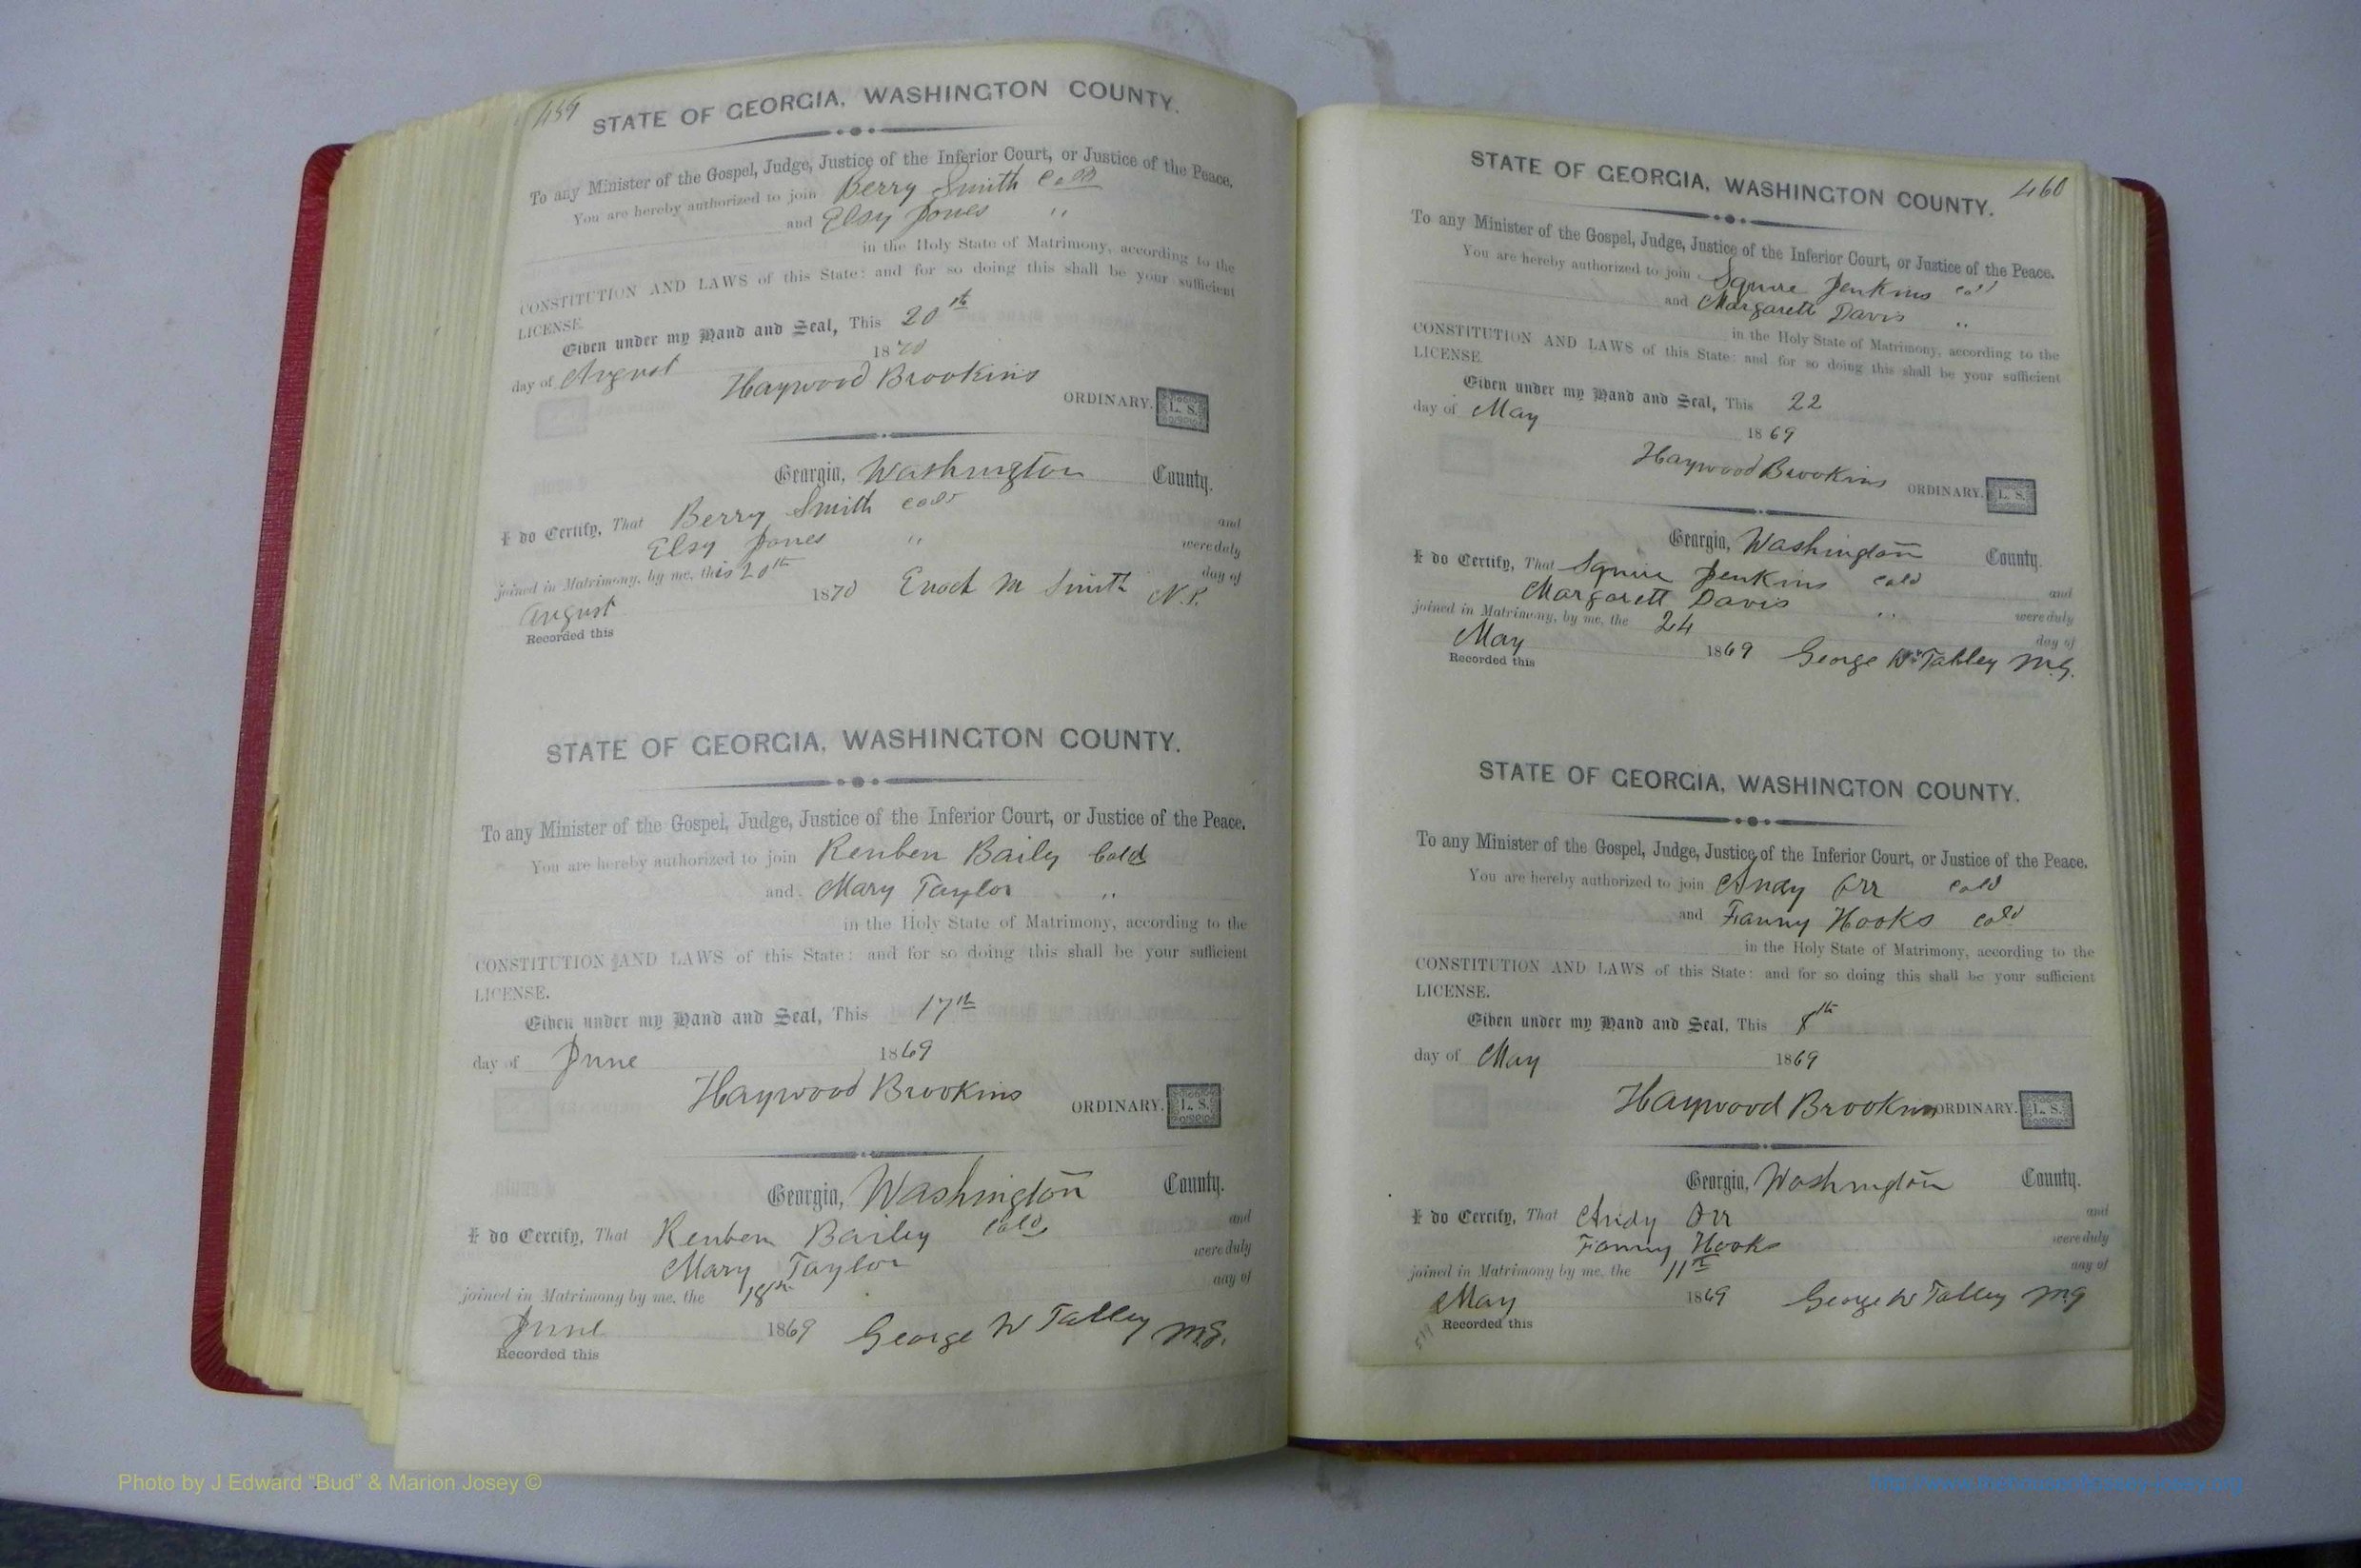 459
STATE OF GEORGIA, WASHINGTON COUNTY.
To any Minister of the Gospel, Judge, Justice of the Inferior Court, or Justice of the Peace.
You are hereby authorized to join Berry Smith Cold
and Elsy Jones "
in the Holy State of Matrimony, according to the
CONSTITUTION AND LAWS of this State: and for so doing this shall be your sufficient
LICENSE.
Given under my Hand and Seal, This 20th
day of August 1870
Haywood Brookins ORDINARY. L. S.
Georgia, Washington County.
I do Certify, That Berry Smith cold and
Elsy Jones " were duly
joined in Matrimony, by me, this 20th day of
August 1870 Enoch M Smith N.P.
Recorded this
STATE OF GEORGIA, WASHINGTON COUNTY.
To any Minister of the Gospel, Judge, Justice of the Inferior Court, or Justice of the Peace.
You are hereby authorized to join Reuben Baily Cold
and Mary Taylor "
in the Holy State of Matrimony, according to the
CONSTITUTION AND LAWS of this State: and for so doing this shall be your sufficient
LICENSE.
Given under my Hand and Seal, This 17th
day of June 1869
Haywood Brookins ORDINARY. L. S.
Georgia, Washington County.
I do Certify, That Reuben Bailey Cold and
Mary Taylor were duly
joined in Matrimony by me, the 18th day of
June 1869 George W Talley M.G.
Recorded this
STATE OF GEORGIA, WASHINGTON COUNTY. 460
To any Minister of the Gospel, Judge, Justice of the Inferior Court, or Justice of the Peace.
You are hereby authorized to join Squire Jenkins cold
and Margarett Davis "
in the Holy State of Matrimony, according to the
CONSTITUTION AND LAWS of this State: and for so doing this shall be your sufficient
LICENSE.
Given under my Hand and Seal, This 22
day of May 1869
Haywood Brookins ORDINARY. L. S.
Georgia, Washington County.
I do Certify, That Squire Jenkins cold and
Margarett Davis " were duly
joined in Matrimony, by me, the 24 day of
May 1869 George W Talley M.G.
Recorded this
STATE OF GEORGIA, WASHINGTON COUNTY.
To any Minister of the Gospel, Judge, Justice of the Inferior Court, or Justice of the Peace.
You are hereby authorized to join Andy Orr cold
and Fanny Hooks cold
in the Holy State of Matrimony, according to the
CONSTITUTION AND LAWS of this State: and for so doing this shall be your sufficient
LICENSE.
Given under my Hand and Seal, This 8th
day of May 1869
Haywood Brookins ORDINARY. L. S.
Georgia, Washington County.
I do Certify, That Andy Orr and
Fanny Hooks were duly
joined in Matrimony by me, the 11th day of
May 1869 George W Talley M.G
Recorded this
Photo by J Edward “Bud” & Marion Josey ©